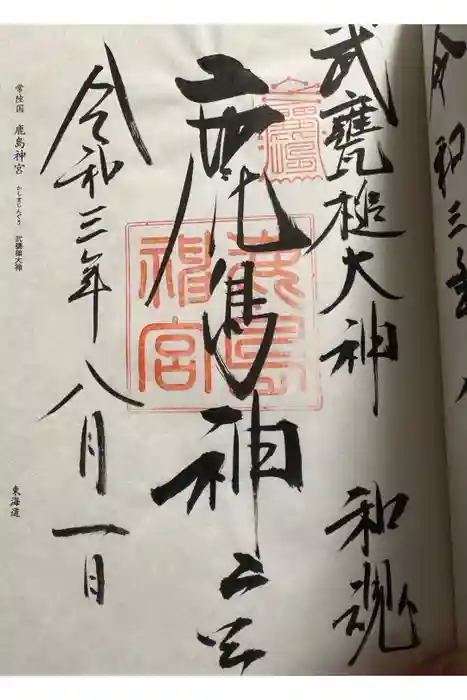 武甕槌大神 和魂
鹿島神宮
令和三年八月一日
常陸国 鹿島神宮 かしまじんぐう 武甕槌大神
東海道
鹿島神宮